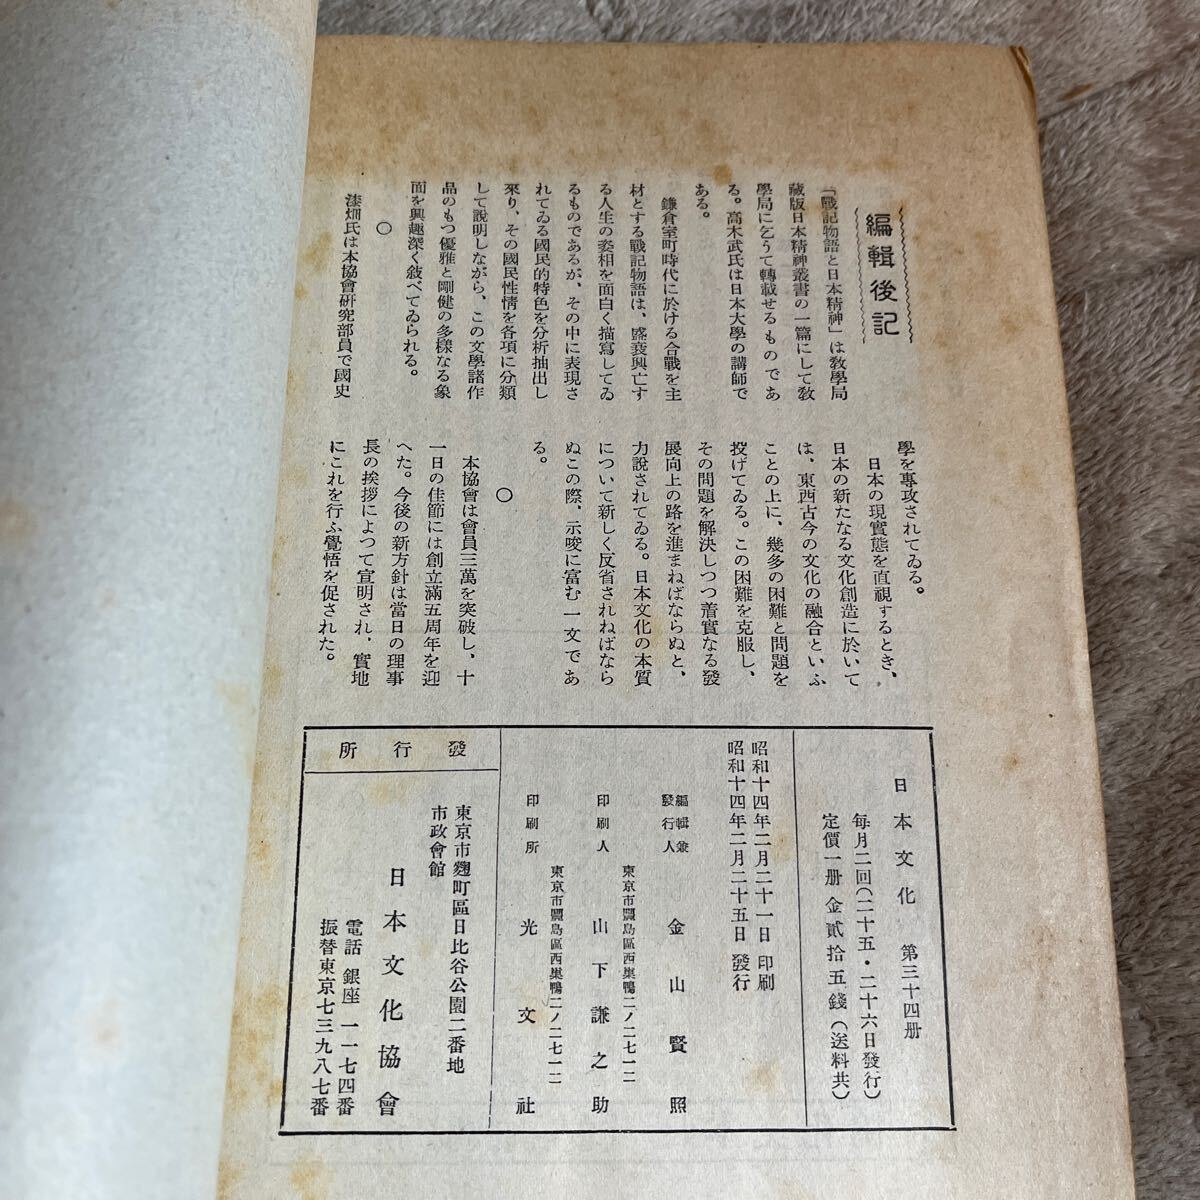 編輯後記
「戰記物語と日本精神」は敎學局
藏版日本精神叢書の一篇にして敎
學局に乞うて轉載せるものであ
る。高木武氏は日本大學の講師で
ある。
鎌倉室町時代に於ける合戰を主
材とする戰記物語は、盛衰興亡す
る人生の姿相を面白く描寫してゐ
るものであるが、その中に表現さ
れてゐる國民的特色を分析抽出し
來り、その國民性情を各項に分類
して説明しながら、この文學諸作
品のもつ優雅と剛健の多樣なる象
面を興趣深く敍べてゐられる。
○
漆畑氏は本協會硏究部員で國史
學を專攻されてゐる。
日本の現實態を直視するとき、
日本の新たなる文化創造に於いて
は、東西古今の文化の融合といふ
ことの上に、幾多の困難と問題を
投げてゐる。この困難を克服し、
その問題を解決しつつ着實なる發
展向上の路を進まねばならぬと、
力説されてゐる。日本文化の本質
について新しく反省されねばなら
ぬこの際、示唆に富む一文であ
る。
○
本協會は會員三萬を突破し、十
一日の佳節には創立滿五周年を迎
へた。今後の新方針は當日の理事
長の挨拶によつて宣明され、實地
にこれを行ふ覺悟を促された。
日本文化 第三十四册
每月二回(二十五・二十六日發行)
定價一册 金貳拾五錢(送料共)
昭和十四年二月二十一日 印刷
昭和十四年二月二十五日 發行
編輯兼
發行人 金山賢照
東京市豐島區西巢鴨二ノ二七一二
印刷人 山下謙之助
東京市豐島區西巢鴨二ノ二七一二
印刷所 光文社
發行所
東京市麴町區日比谷公園二番地
市政會館
日本文化協會
電話 銀座 一一七四番
振替東京七三九八七番